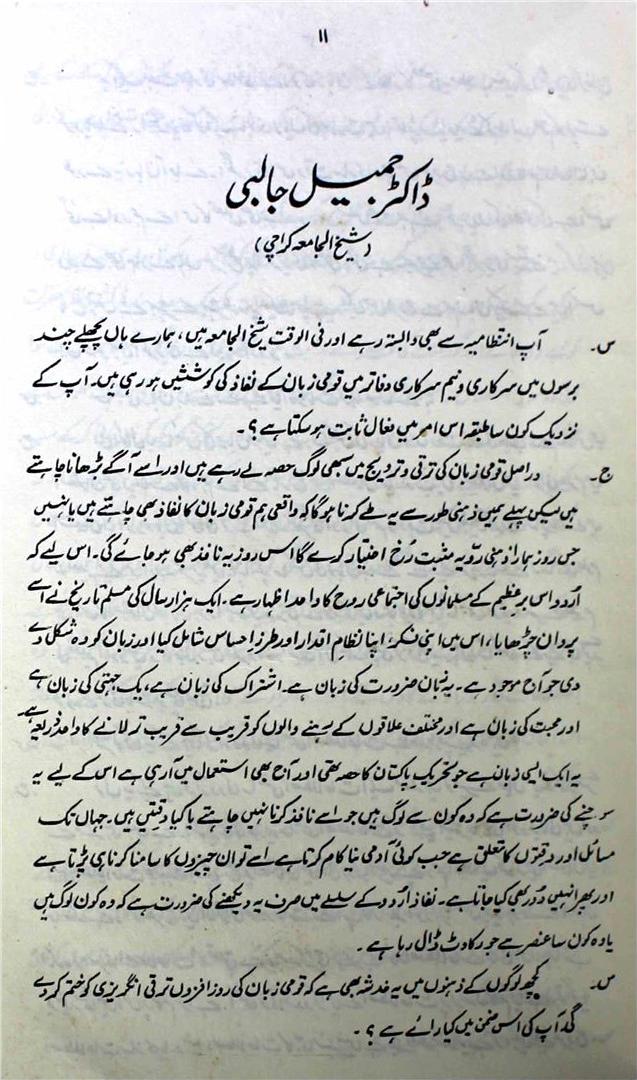 ۱۱
ڈاکٹر جمیل جالبی
(شیخ الجامعہ کراچی)
س۔ آپ انتظامیہ سے بھی وابستہ رہے اور فی الوقت شیخ الجامعہ ہیں، ہمارے ہاں پچھلے چند
برسوں میں سرکاری و نیم سرکاری دفاتر میں قومی زبان کے نفاذ کی کوششیں ہو رہی ہیں۔ آپ کے
نزدیک کون سا طبقہ اس امر میں فعال ثابت ہو سکتا ہے؟۔
ج۔ دراصل قومی زبان کی ترقی و ترویج میں سبھی لوگ حصہ لے رہے ہیں اور اسے آگے بڑھانا چاہتے
ہیں لیکن پہلے ہمیں ذہنی طور سے یہ طے کرنا ہوگا کہ واقعی ہم قومی زبان کا نفاذ بھی چاہتے ہیں یا نہیں
جس روز ہمارا ذہنی رویہ مثبت رُخ اختیار کرے گا اس روز یہ نافذ بھی ہو جائے گی۔ اس لیے کہ
اُردو اس برعظیم کے مسلمانوں کی اجتماعی روح کا واحد اظہار ہے۔ ایک ہزار سال کی مسلم تاریخ نے اسے
پروان چڑھایا، اس میں اپنی فکر، اپنا نظامِ اقدار اور طرزِ احساس شامل کیا اور زبان کو وہ شکل دے
دی جو آج موجود ہے۔ یہ زبان ضرورت کی زبان ہے۔ اشتراک کی زبان ہے، یک جہتی کی زبان ہے
اور محبت کی زبان ہے اور مختلف علاقوں کے بسنے والوں کو قریب سے قریب تر لانے کا واحد ذریعہ ہے۔
یہ ایک ایسی زبان ہے جو تحریکِ پاکستان کا حصہ تھی اور آج بھی استعمال میں آ رہی ہے اس کے لیے یہ
سوچنے کی ضرورت ہے کہ وہ کون سے لوگ ہیں جو اسے نافذ کرنا نہیں چاہتے یا کیا دقتیں ہیں۔ جہاں تک
مسائل اور دقتوں کا تعلق ہے جب کوئی آدمی نیا کام کرتا ہے اسے تو ان چیزوں کا سامنا کرنا ہی پڑتا ہے
اور پھر انہیں دُور بھی کیا جاتا ہے۔ نفاذِ اردو کے سلسلے میں صرف یہ دیکھنے کی ضرورت ہے کہ وہ کون لوگ ہیں
یا وہ کون سا عنصر ہے جو رکاوٹ ڈال رہا ہے۔
س۔ کچھ لوگوں کے ذہنوں میں یہ خدشہ بھی ہے کہ قومی زبان کی روز افزوں ترقی انگریزی کو ختم کر دے
گی آپ کی اس ضمن میں کیا رائے ہے؟۔